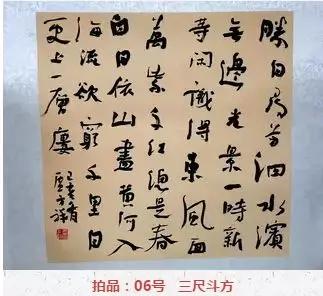 勝日尋芳泗水濱
無邊光景一時新
等闲識得東風面
萬紫千红總是春
白日依山盡黄河入
海流欲窮千里目
更上一層樓
拍品：06号 三尺斗方